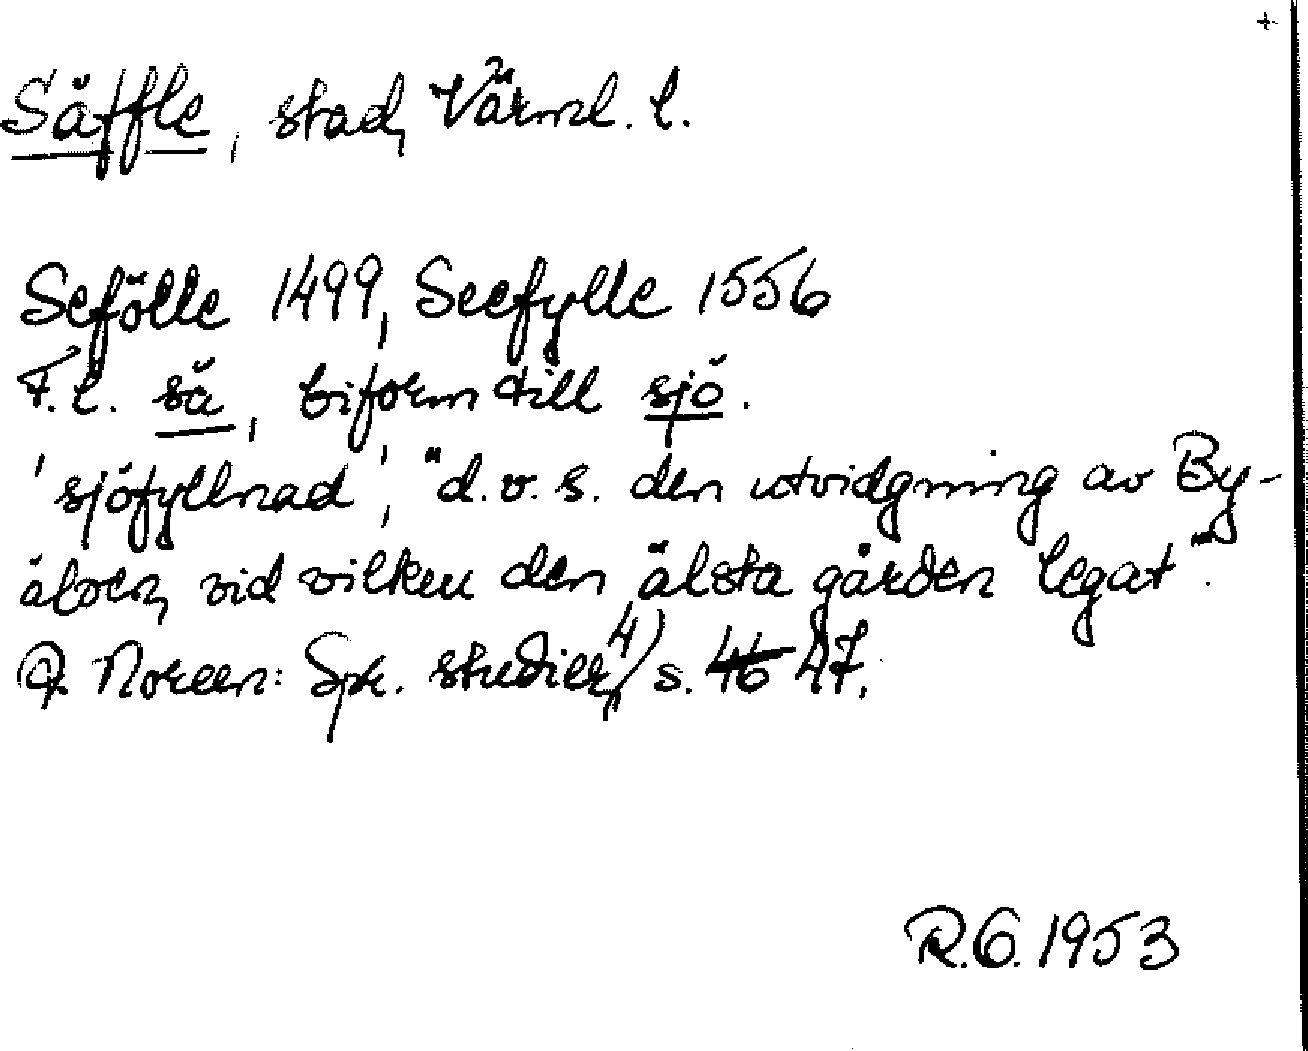 Säffle, stad, Värml. l.
Sefölle 1499, Seefylle 1556
F.l. sä, biform till sjö.
'sjöfyllnad', "d.v.s. den utvidgning av By-
älven, vid vilken den älsta gården legat".
A. Noreen: Spr. studier, 4) s. 47.
R.O. 1953